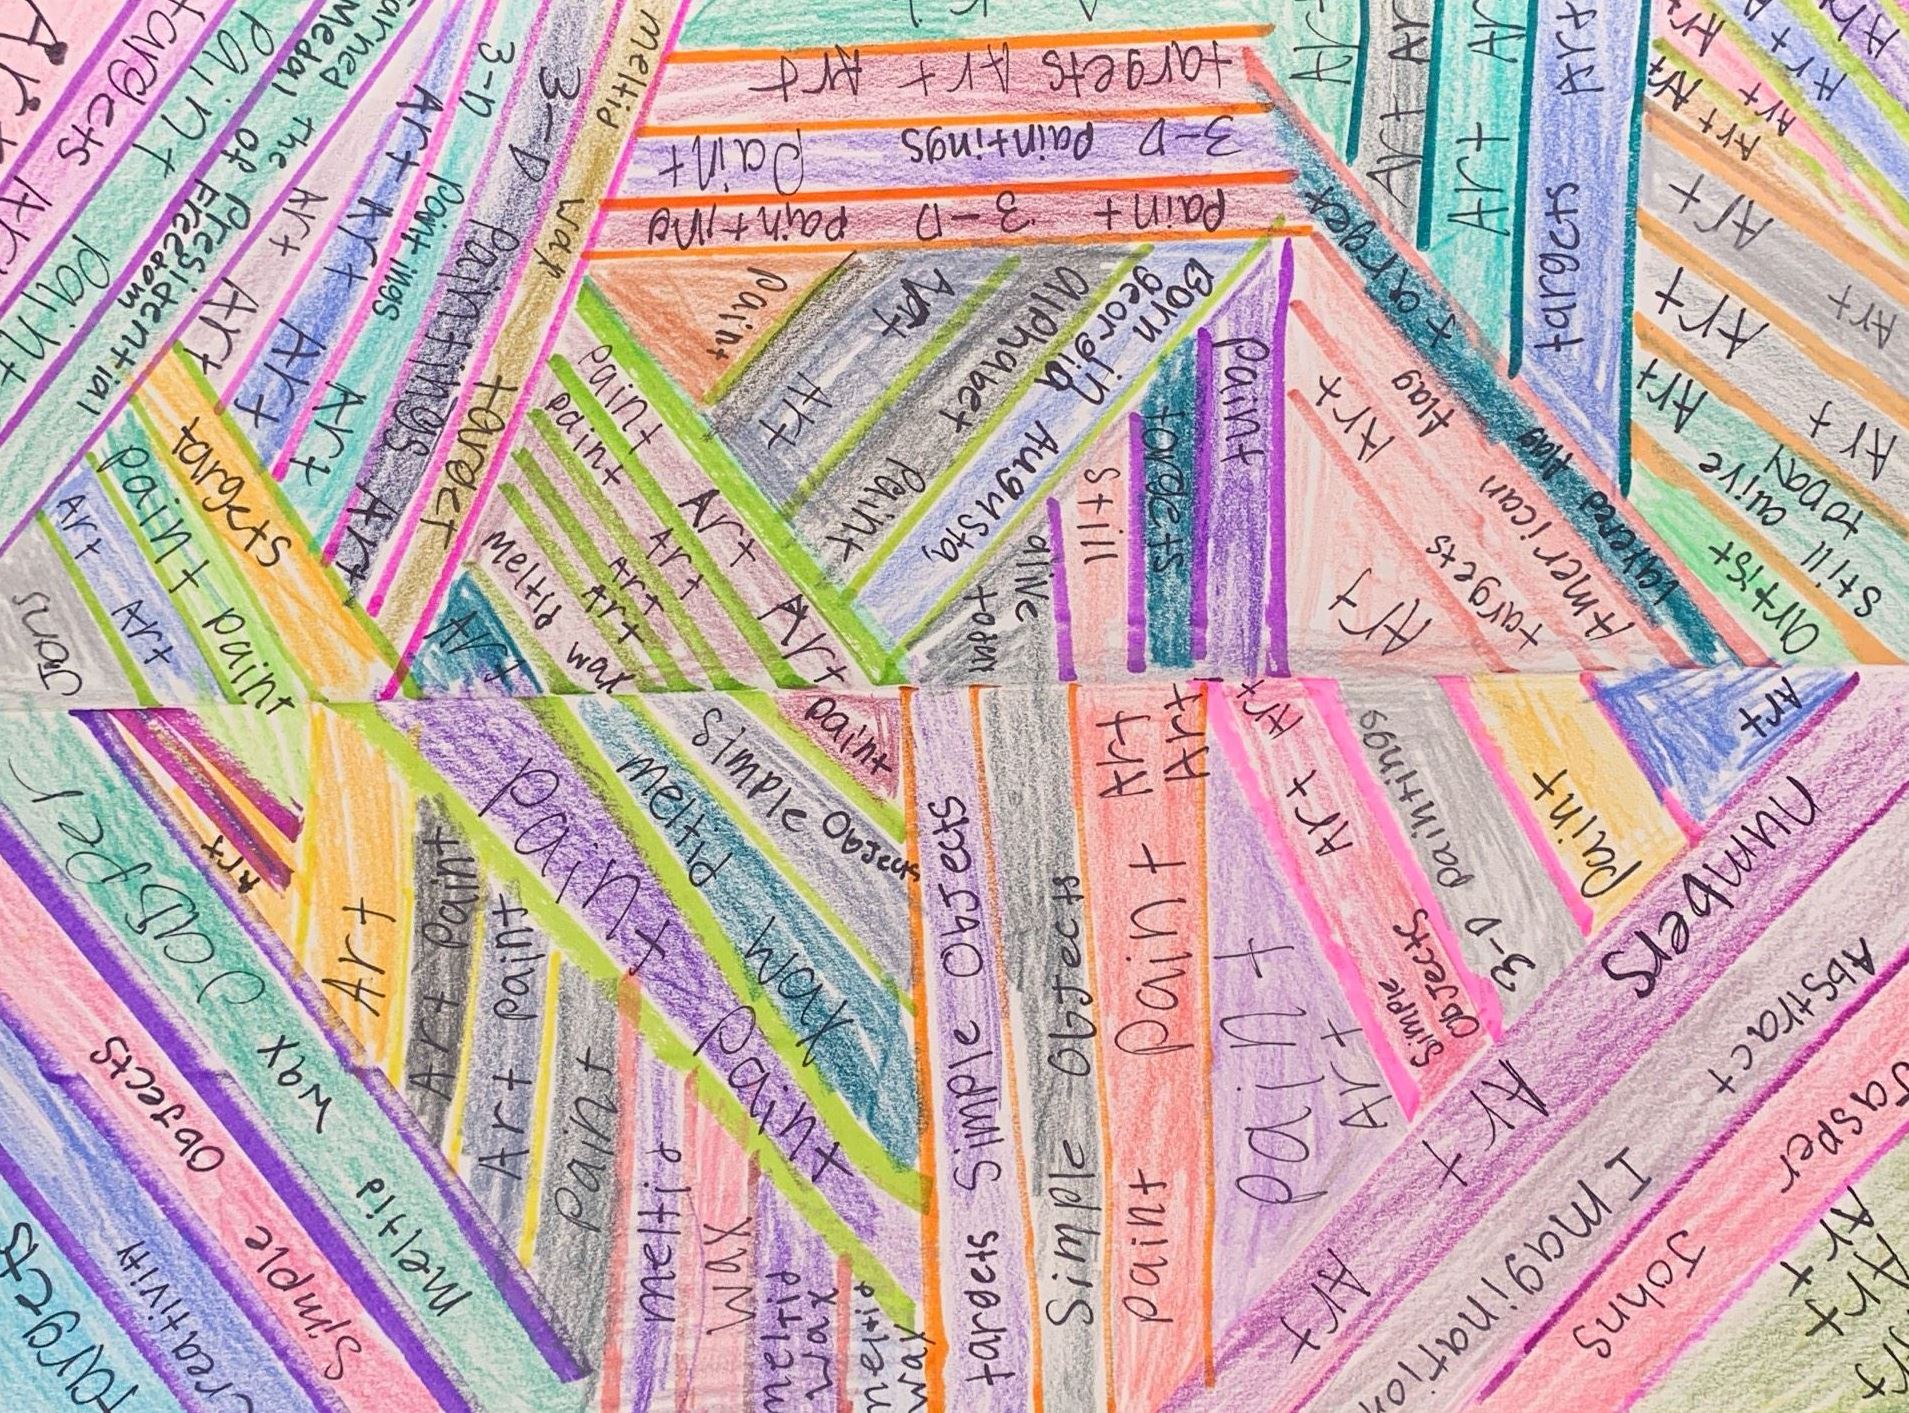 Art
targets Art
paint
paint
earned the Presidential
Medal of Freedom
Art Art
Art Art Art
3-D paintings
Art Art
3-D paintings Art
meltid wax target
targets Art Art
3-D paintings paint
paint 3-D painting
Art
Art Art
Art Art
targets
Art Art
Art Art
Art
Art
Art Art
Art Art
Art
still alive today
artist
target target layered flag
American flag
targets
Art
Art
paint
targets
still
alive today
Born in Augusta,
georgia
alphabet paint
Art Art
paint
paint Art Art
paint Art
Art
Art
meltid wax
Art
targets
paint paint
Art Art
Jons
Jasper
Jasper wax meltid
Simple Objects
creativity
targets
Art
Art
Art paint
Art paint
paint
meltid
wax
meltid wax
meltid wax
paint paint
meltid wax
Simple Objects
paint
targets Simple Objects
Simple Objects
paint paint Art
Art
paint
Art
Art Art
Simple Objects
3-D paintings
paint
Art
numbers Art Art
Abstract
Imagination
Jasper Johns
Art
Art
Art